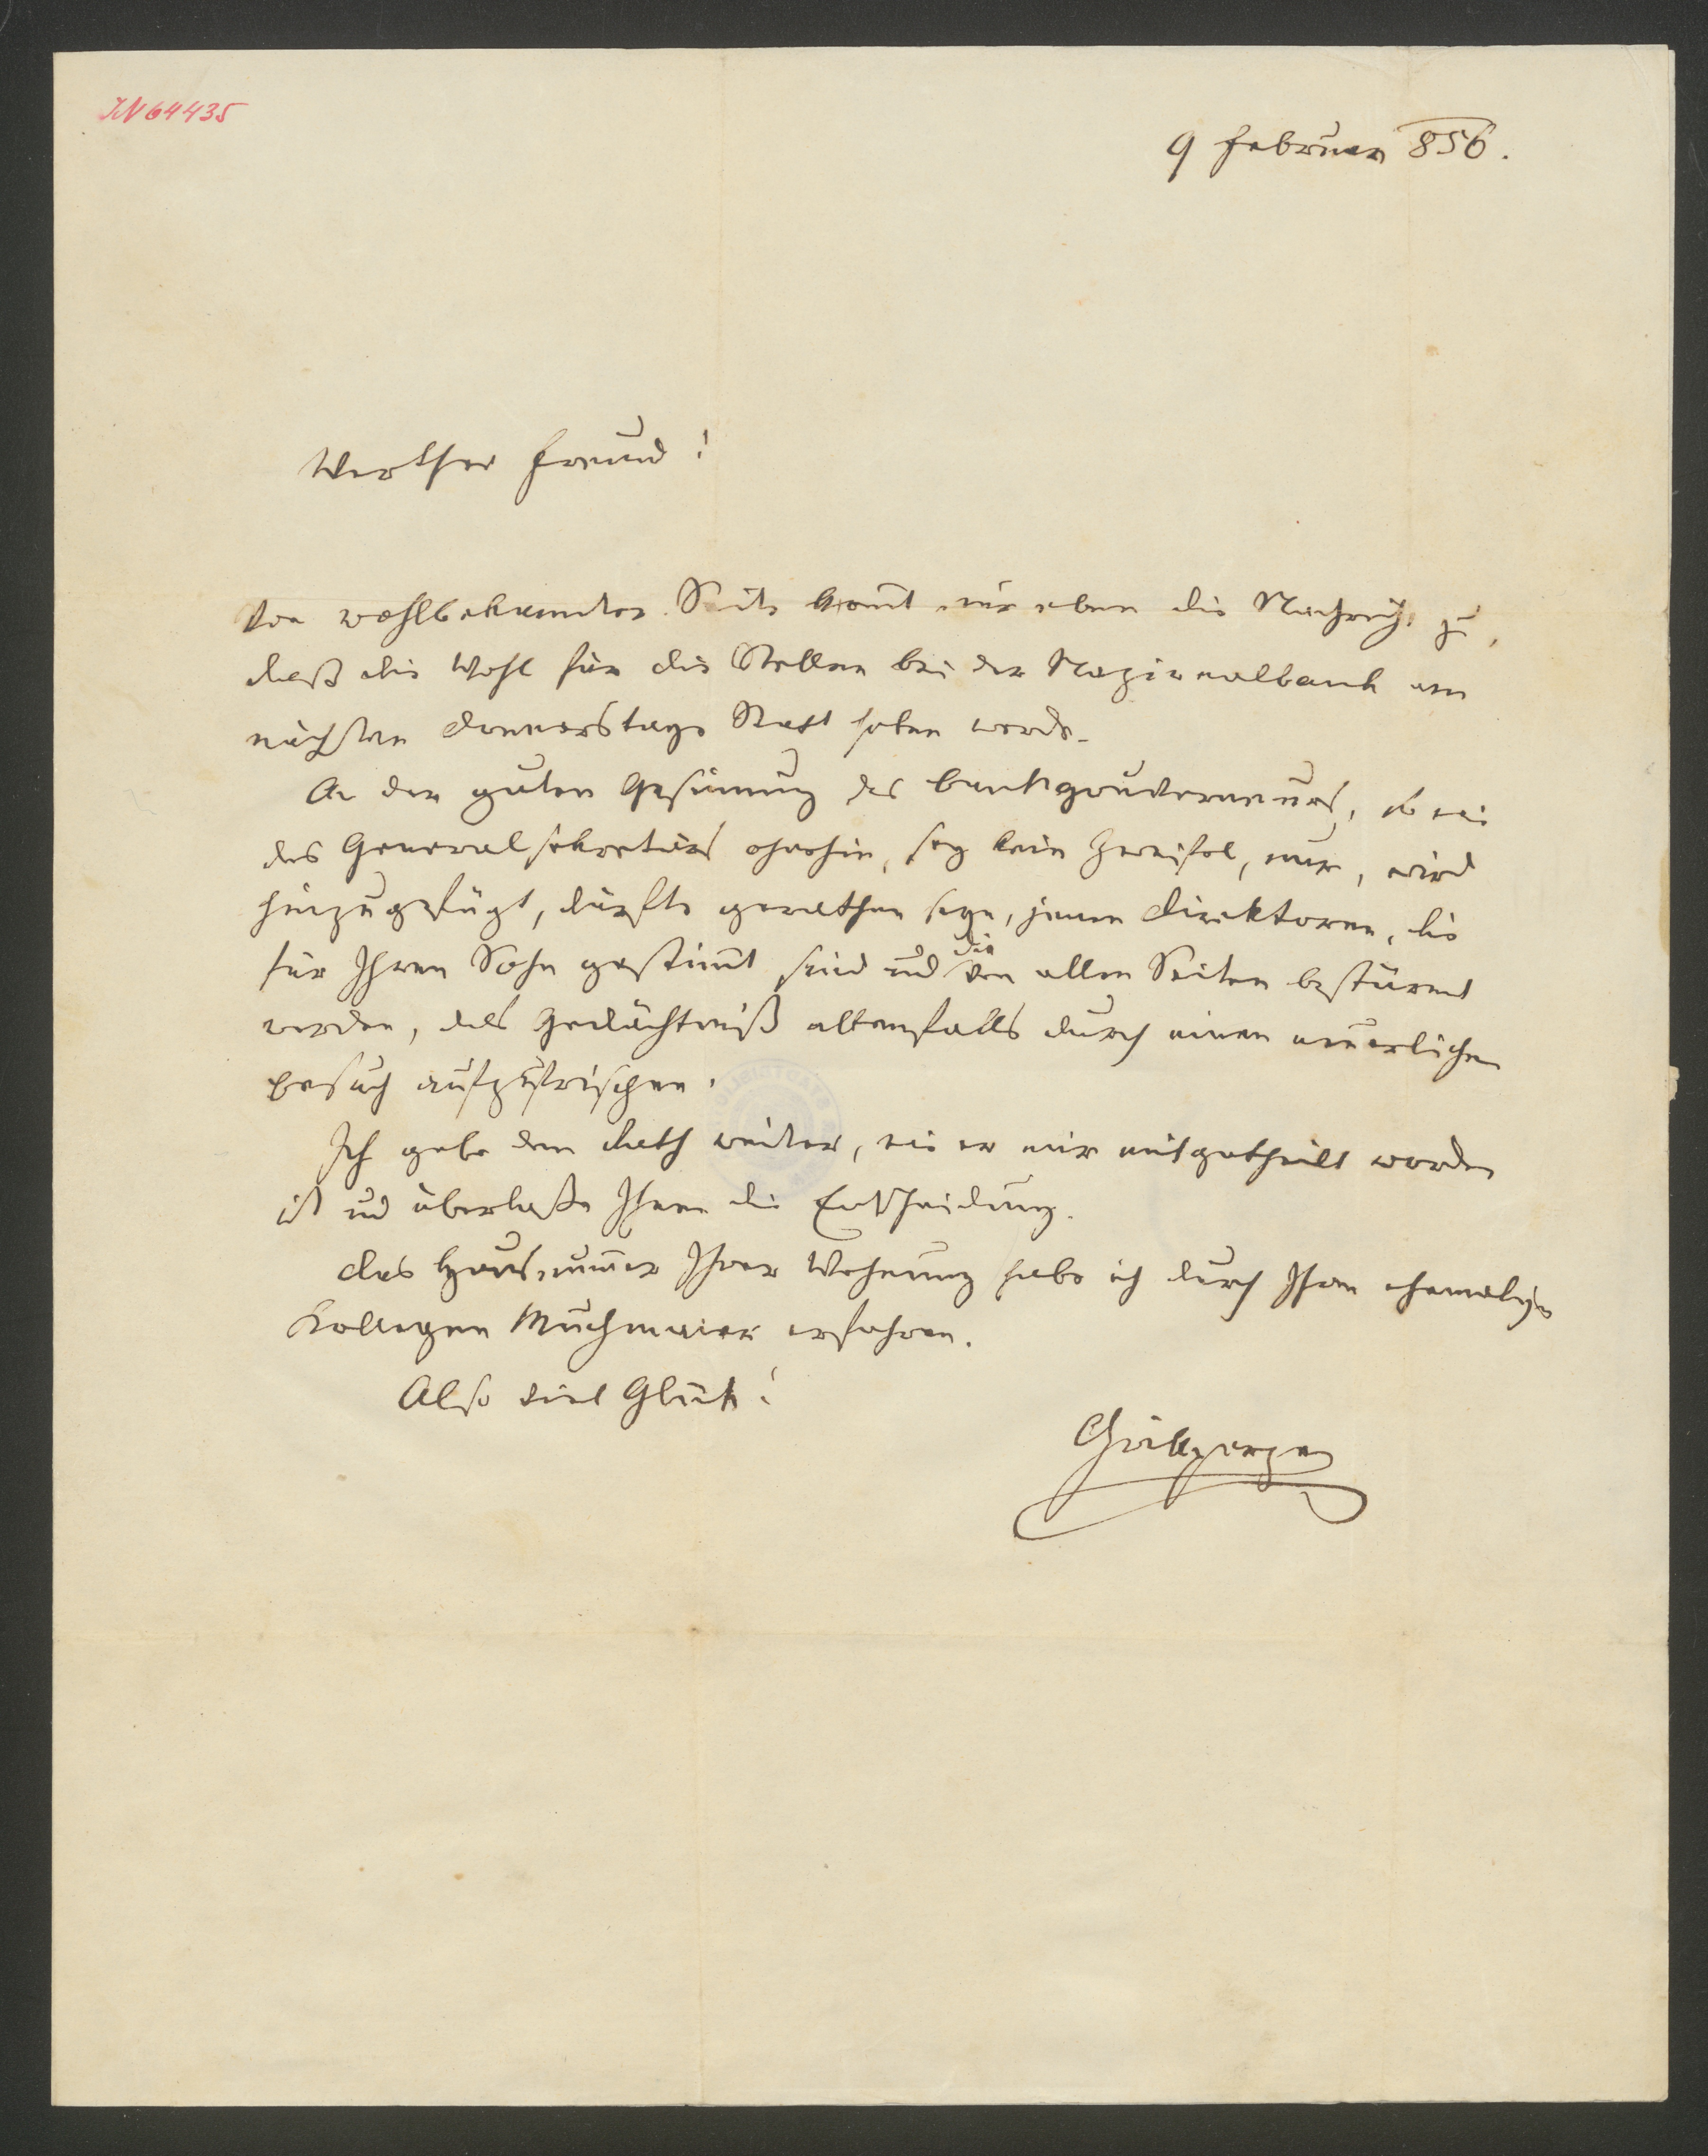 IN 64435
9 Februar 856.
Werther Freund!
Von wohlbekannter Seite komt mir eben die Nachricht zu,
daß die Wahl für die Stellen bei der Nazionalbank am
nächsten Donnerstage Statt haben werde.
An der guten Gesinnung des Bankgouverneurs, so wie
des Generalsekretärs ohnehin, sey kein Zweifel, nur, wird
hinzugefügt, dürfte gerathen seyn, jenen Direktoren, die
für Ihren Sohn gestimt sind und die von allen Seiten bestürmt
werden, das Gedächtniß allenfalls durch einen neuerlichen
Besuch aufzufrischen.
Ich gebe den Rath weiter, wie er mir mitgetheilt worden
ist und überlaße Ihnen die Entscheidung.
Das Hausnumer Ihrer Wohnung habe ich durch Ihren ehemaligen
Kollegen Muchmaier erfahren.
Also viel Glük!
Grillparzer